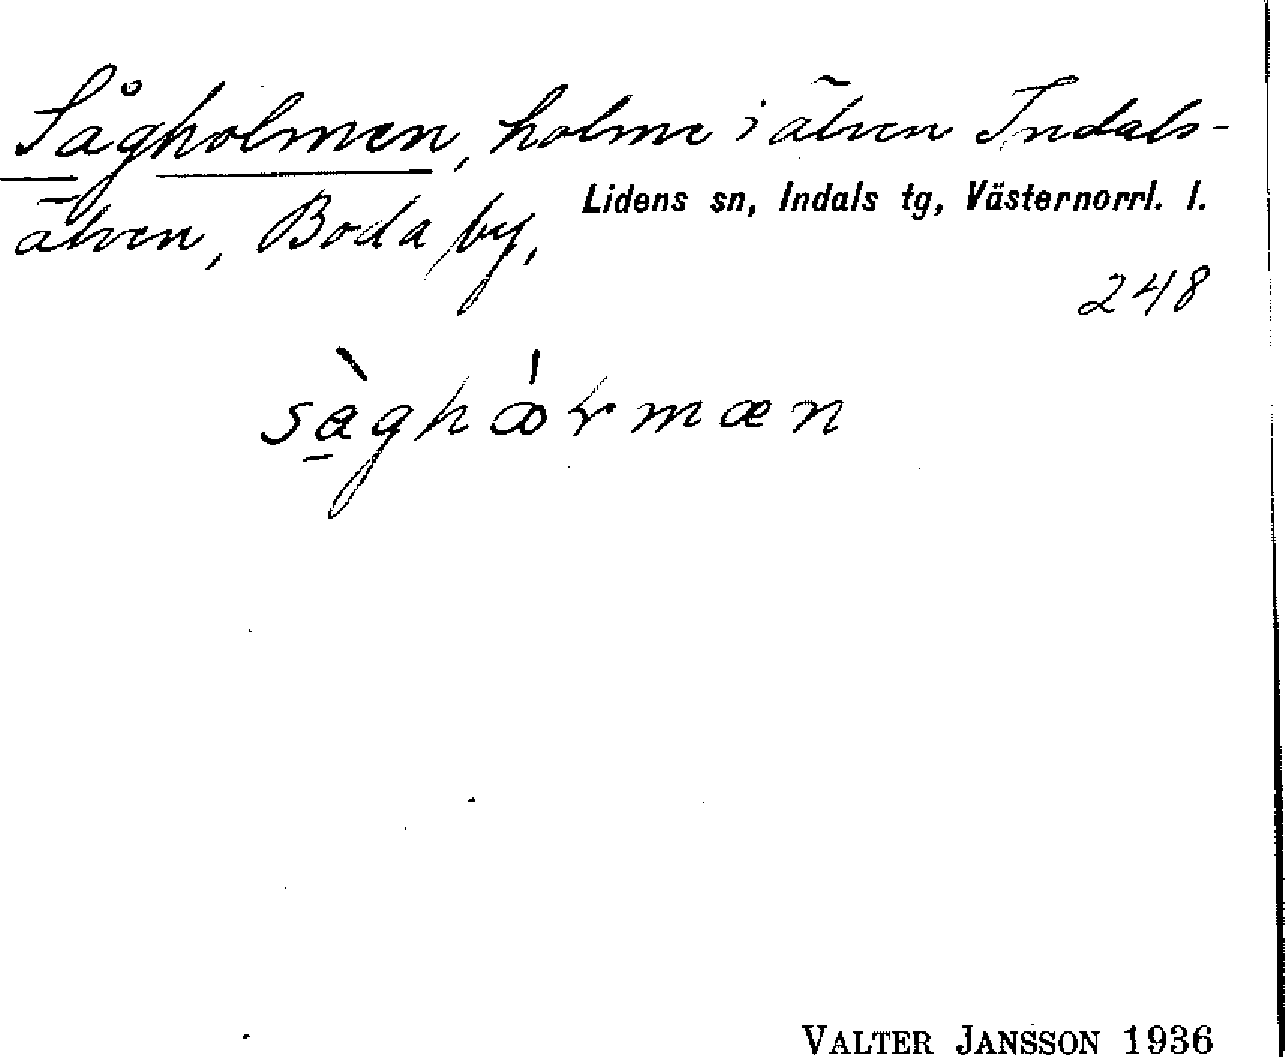 Sågholmen, holme i älven Indals-
älven, Boda by, Lidens sn, Indals tg, Västernorrl. l.
248
VALTER JANSSON 1936